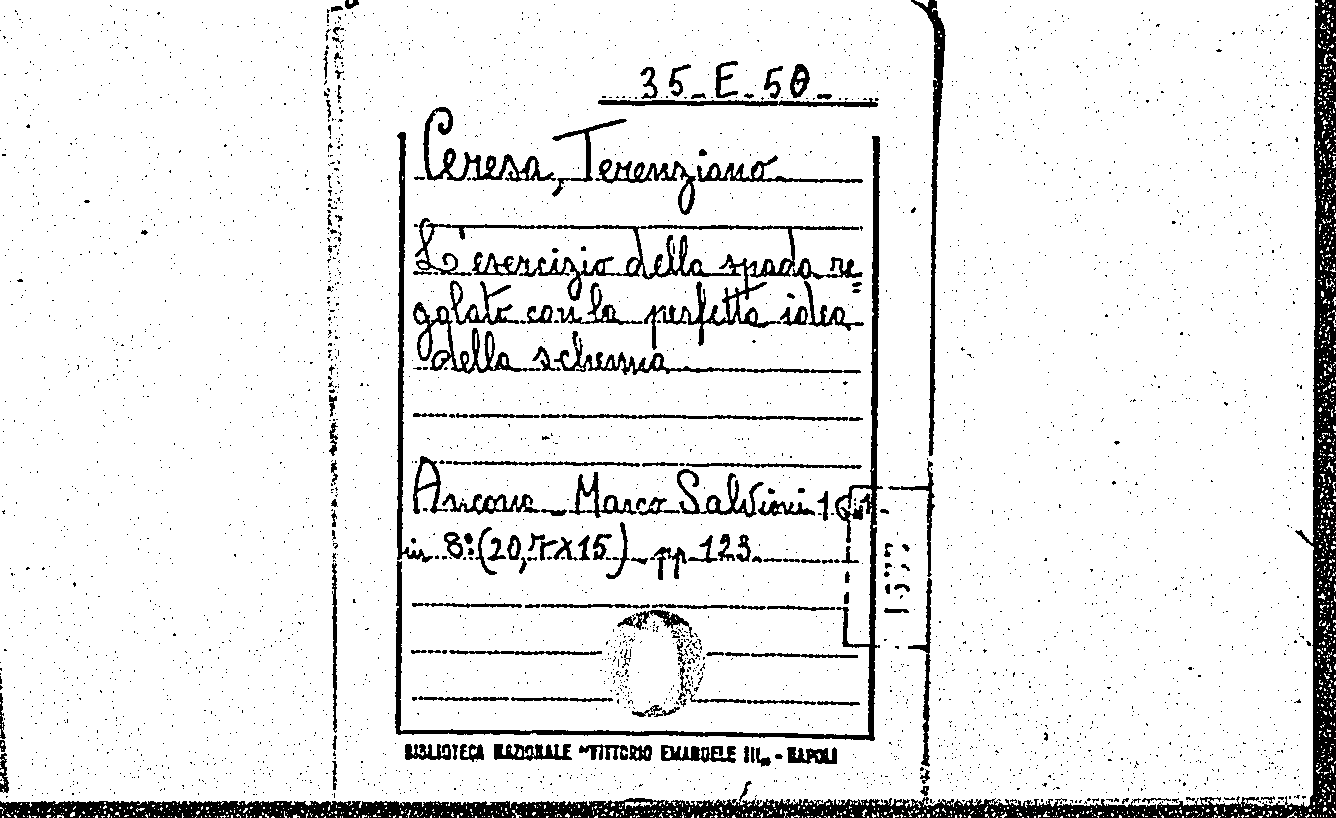 35_E_50_
Ceresa, Terenziano
L'esercizio della spada re=
golato con la perfetta idea
della scherma
Ancona _ Marco Salvioni
in 8:(20,7x15)_ pp 123.
BIBLIOTECA NAZIONALE "VITTORIO EMANUELE III„ - NAPOLI